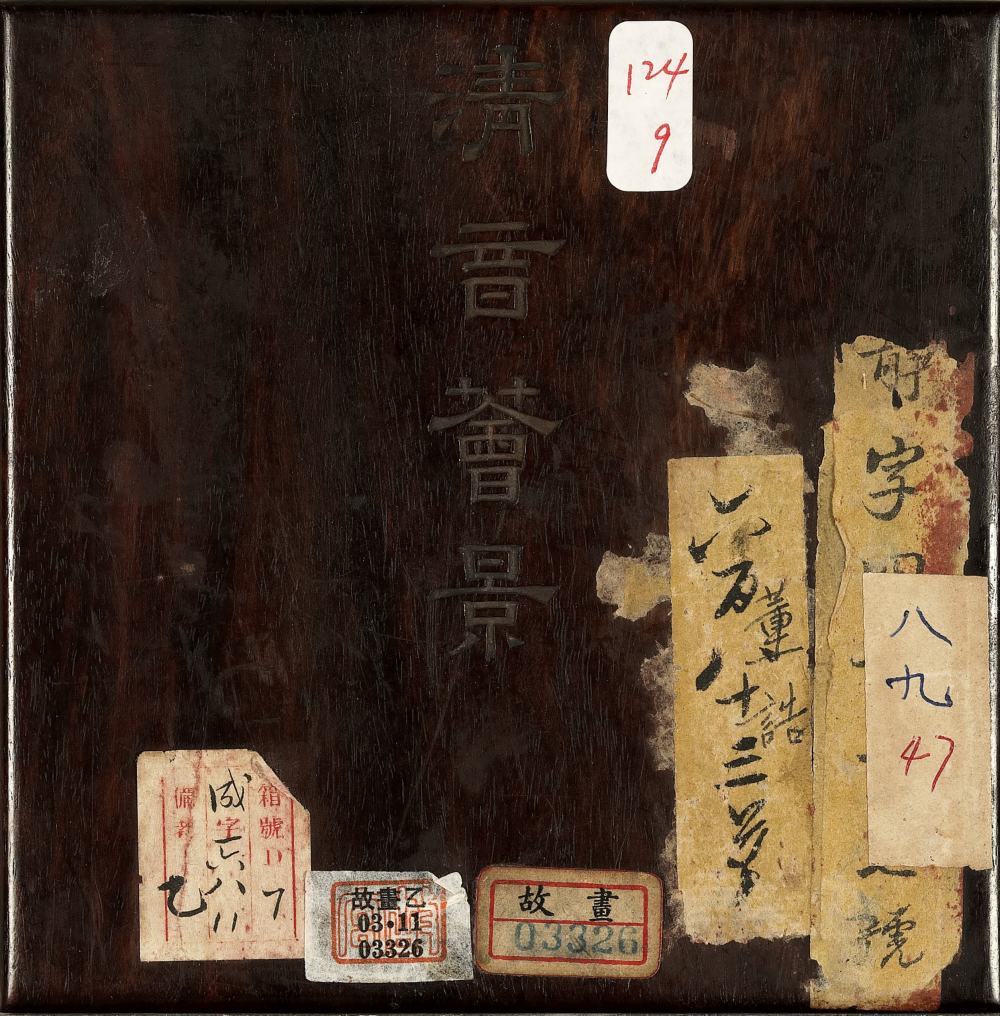 清音薈景
124
9
字
號
八九
47
董誥
八十三
箱號
成字六八
備考
乙
故畫乙
03·11
03326
故畫
03326